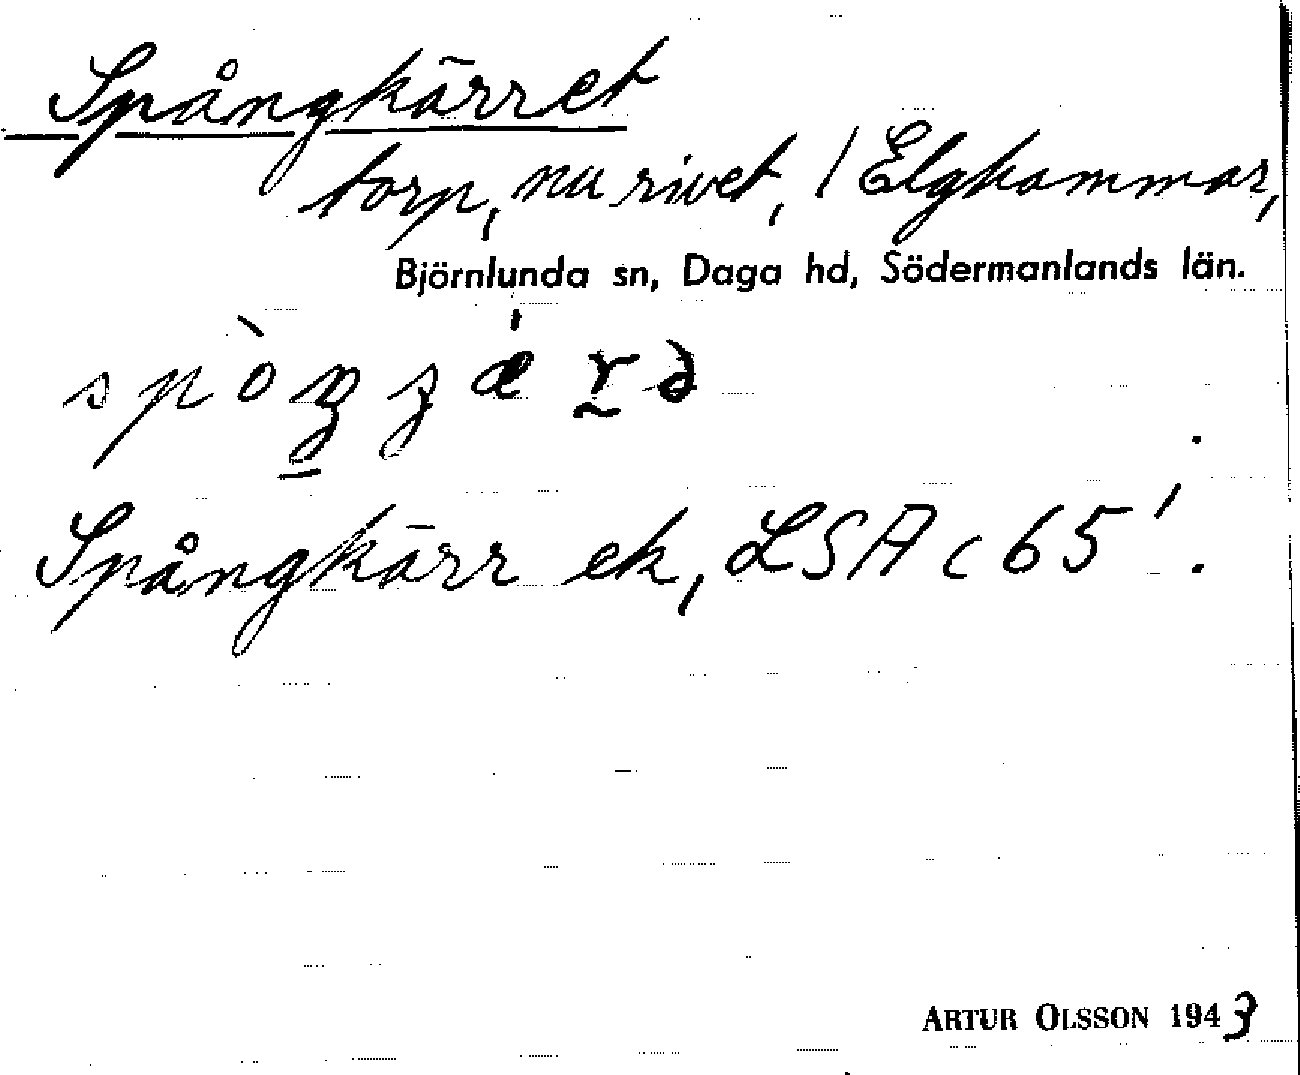 Spångkärret
torp, nu rivet, / Elghammar,
Björnlunda sn, Daga hd, Södermanlands län.
Spångkärr ek, LSA c 65'.
ARTUR OLSSON 1943